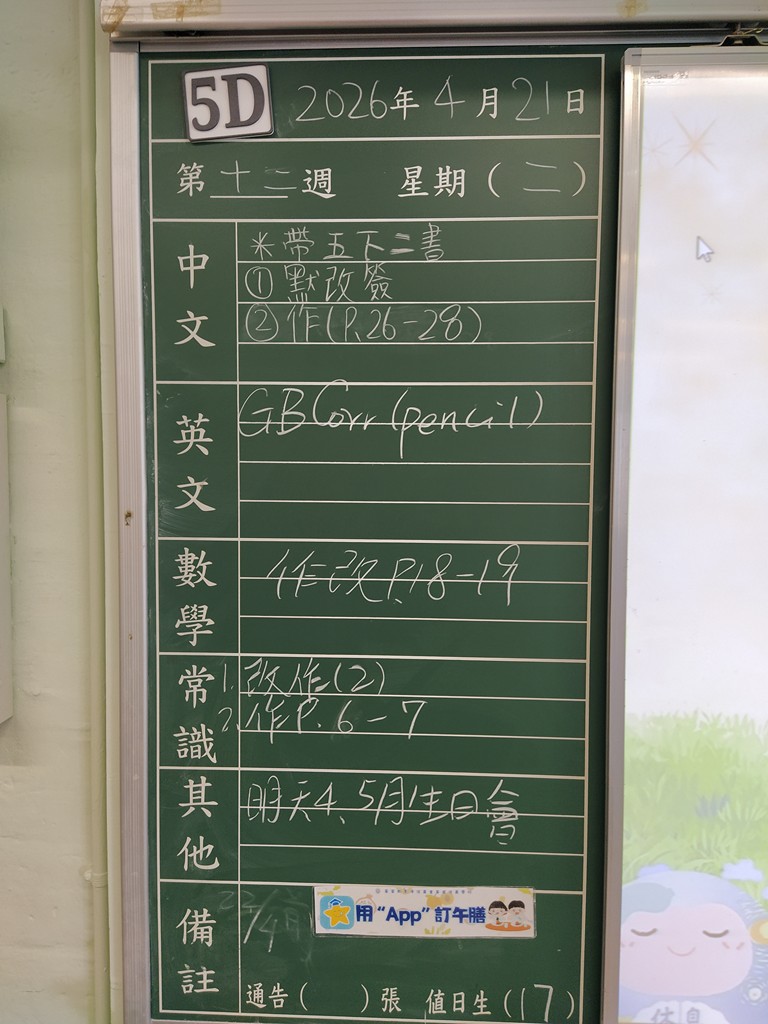 5D 2026年4月21日
第十二週 星期(二)
中文
*帶五下二書
①默改簽
②作(P.26-28)
英文
GB Corr (pencil)
數學
作改P.18-19
常識
1. 改作(2)
2. 作P.6-7
其他
明天4、5月生日會
備註
用“App”訂午膳
通告( )張 值日生(17)
休息